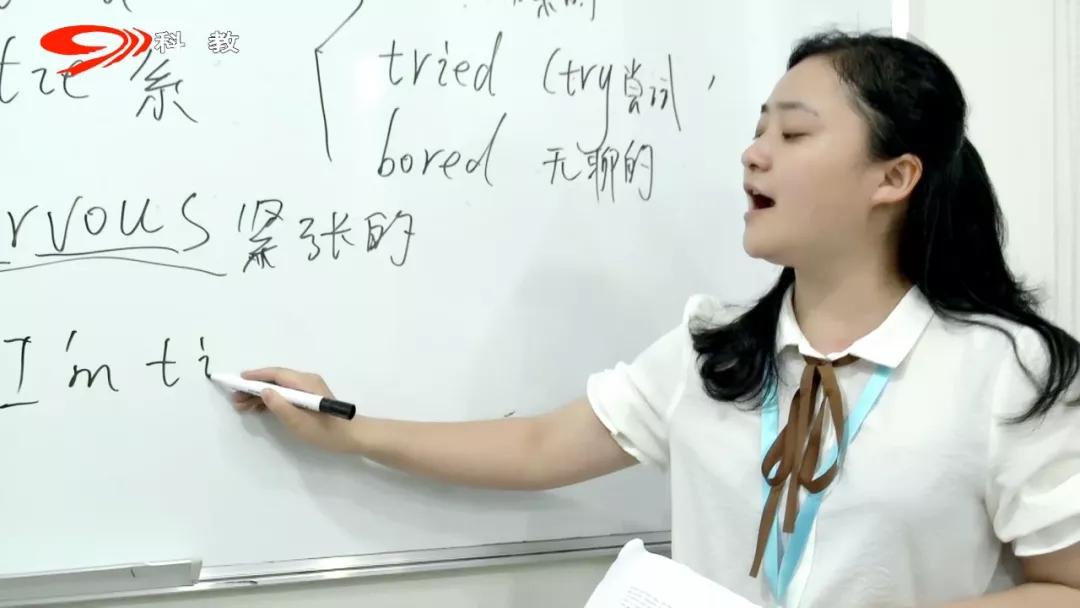 科教
tie 系
tried (try尝试,
bored 无聊的
rvous 紧张的
I'm ti